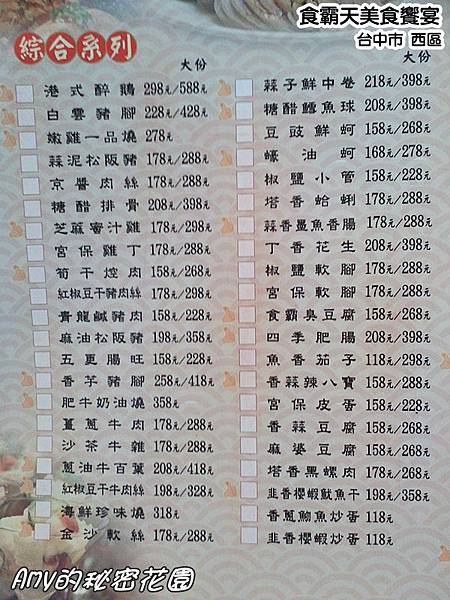 食霸天美食饗宴
台中市 西區
綜合系列
大份
港式醉鵝 298元/588元
白雲豬腳 228元/428元
嫩雞一品燒 278元
蒜泥松阪豬 178元/288元
京醬肉絲 178元/288元
糖醋排骨 208元/398元
芝麻蜜汁雞 178元/298元
宮保雞丁 178元/288元
筍干焢肉 158元/268元
紅椒豆干豬肉絲 178元/298元
青龍鹹豬肉 158元/228元
麻油松阪豬 198元/358元
五更腸旺 158元/228元
香芋豬腳 258元/418元
肥牛奶油燒 358元
薑蔥牛肉 178元/288元
沙茶牛雜 178元/288元
蔥油牛百葉 208元/418元
紅椒豆干牛肉絲 198元/328元
海鮮珍味燒 318元
金沙軟絲 178元/288元
大份
蒜子鮮中卷 218元/398元
糖醋鱈魚球 208元/398元
豆豉鮮蚵 158元/268元
蠔油蚵 168元/278元
椒鹽小管 158元/228元
塔香蛤蜊 178元/288元
蒜香墨魚香腸 178元/288元
丁香花生 208元/398元
椒鹽軟腳 178元/288元
宮保軟腳 178元/288元
食霸臭豆腐 158元/268元
四季肥腸 208元/398元
魚香茄子 118元/298元
香蒜辣八寶 158元/288元
宮保皮蛋 158元/228元
香蒜豆腐 158元/268元
麻婆豆腐 158元/268元
塔香黑螺肉 178元/268元
韭香櫻蝦魷魚干 198元/358元
香蔥魩魚炒蛋 118元
韭香櫻蝦炒蛋 118元
Amy的秘密花園